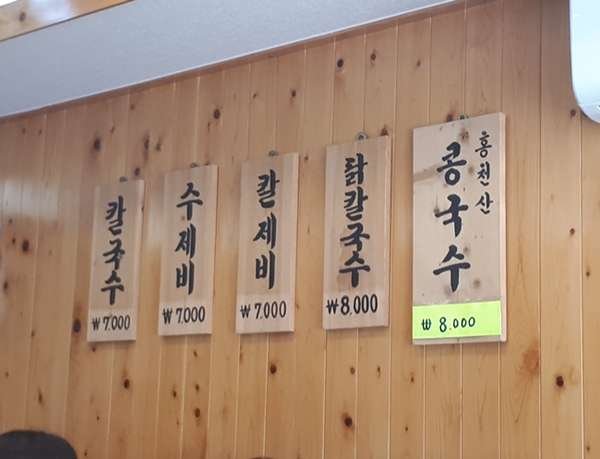 칼국수
₩7,000
수제비
₩7,000
칼제비
₩7,000
닭칼국수
₩8,000
홍천산
콩국수
₩ 8,000